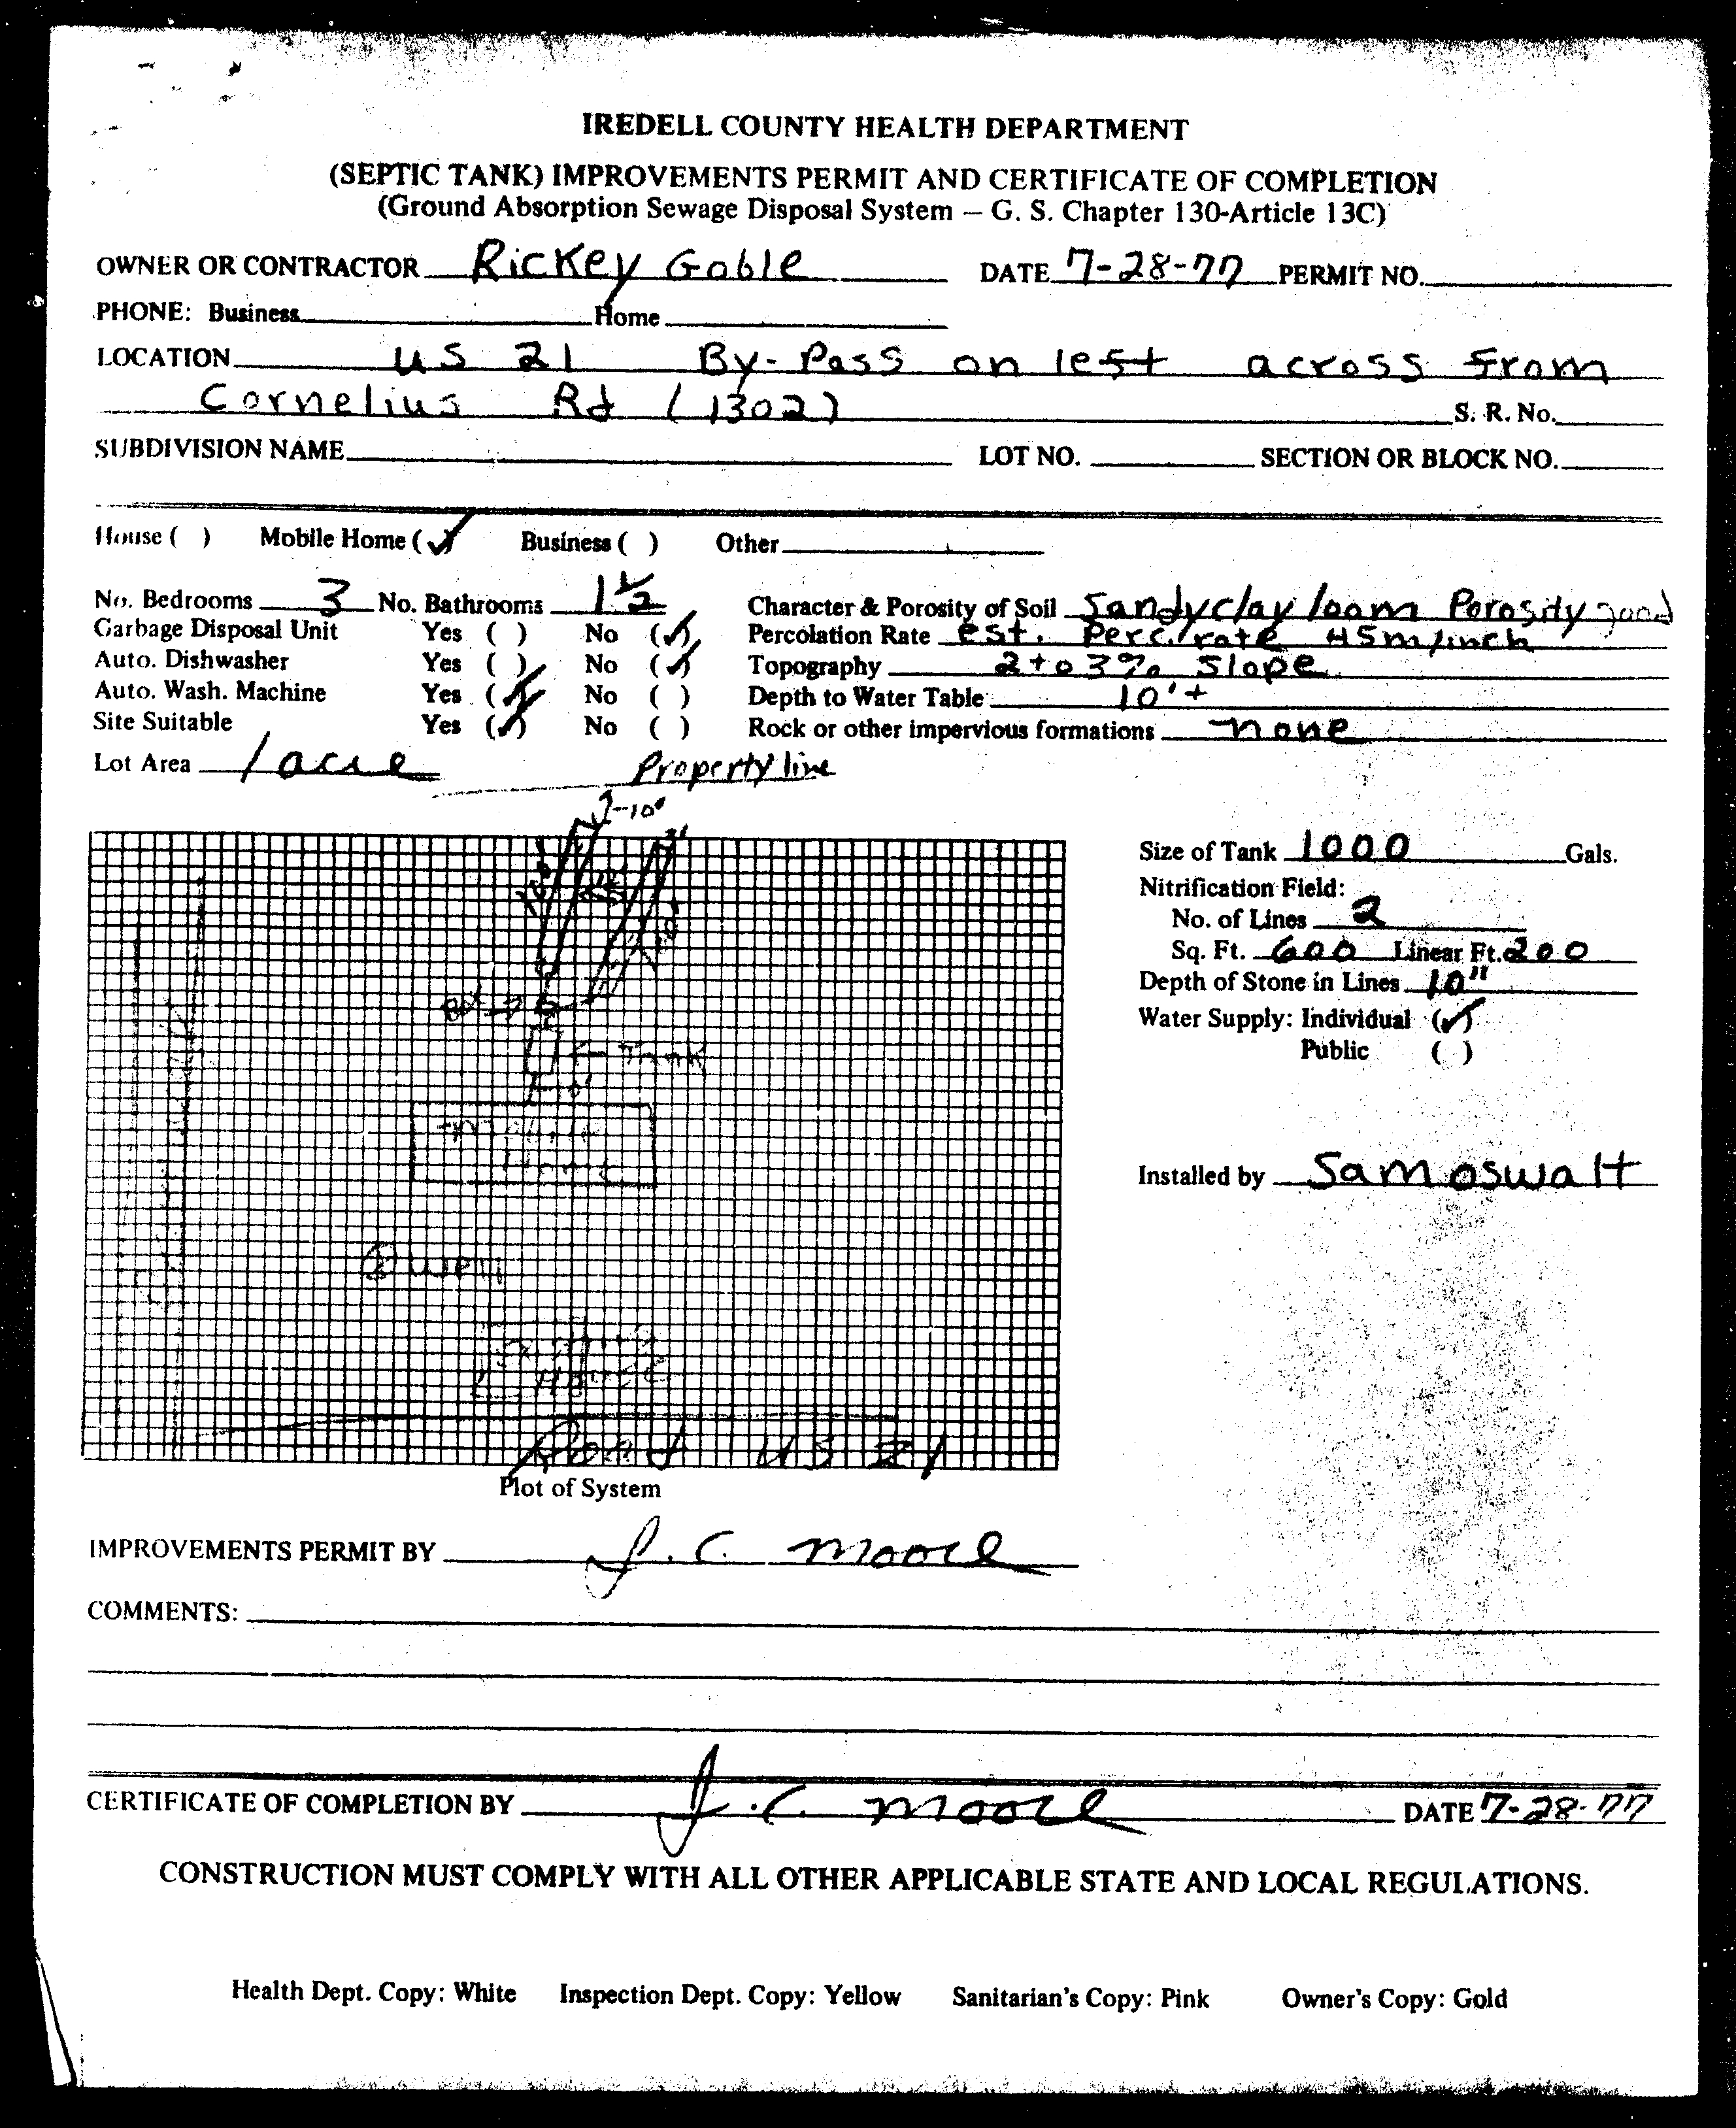 IREDELL COUNTY HEALTH DEPARTMENT
(SEPTIC TANK) IMPROVEMENTS PERMIT AND CERTIFICATE OF COMPLETION
(Ground Absorption Sewage Disposal System — G. S. Chapter 130-Article 13C)
OWNER OR CONTRACTOR Rickey Goble DATE 7-28-77 PERMIT NO.
PHONE: Business Home
LOCATION US 21 By-Pass on left across from
Cornelius Rd (1302) S. R. No.
SUBDIVISION NAME LOT NO. SECTION OR BLOCK NO.
House ( ) Mobile Home (✓) Business ( ) Other
No. Bedrooms 3 No. Bathrooms 1 1/2 Character & Porosity of Soil Sandy clay loam Porosity good
Garbage Disposal Unit Yes ( ) No (✓) Percolation Rate est. Perc. rate 45m/inch
Auto. Dishwasher Yes ( ) No (✓) Topography 2 to 3% Slope
Auto. Wash. Machine Yes (✓) No ( ) Depth to Water Table 10'+
Site Suitable Yes (✓) No ( ) Rock or other impervious formations none
Lot Area 1 acre Property line
10'
Size of Tank 1000 Gals.
Nitrification Field:
No. of Lines 2
Sq. Ft. 600 Linear Ft. 200
Depth of Stone in Lines 10"
Water Supply: Individual (✓)
Public ( )
← Tank
Home
Well
House
Installed by Sam Oswalt
Road US 21
Plot of System
IMPROVEMENTS PERMIT BY J. C. Moore
COMMENTS:
CERTIFICATE OF COMPLETION BY J. C. Moore DATE 7-28-77
CONSTRUCTION MUST COMPLY WITH ALL OTHER APPLICABLE STATE AND LOCAL REGULATIONS.
Health Dept. Copy: White Inspection Dept. Copy: Yellow Sanitarian's Copy: Pink Owner's Copy: Gold